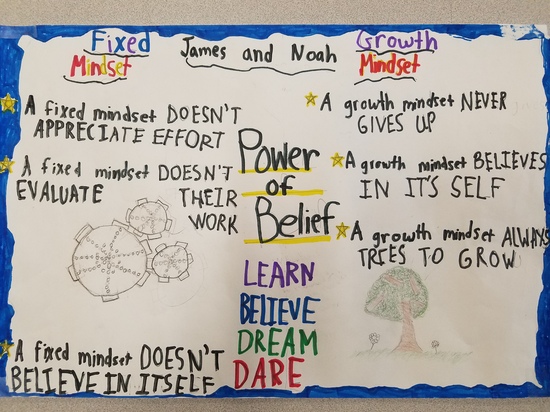 Fixed
Mindset
James and Noah
Growth
Mindset
A fixed mindset DOESN'T
APPRECIATE EFFORT
A fixed mindset DOESN'T
EVALUATE THEIR
WORK
A fixed mindset DOESN'T
BELIEVE IN ITSELF
Power
of
Belief
LEARN
BELIEVE
DREAM
DARE
A growth mindset NEVER
GIVES UP
A growth mindset BELIEVES
IN IT'S SELF
A growth mindset ALWAYS
TRIES TO GROW